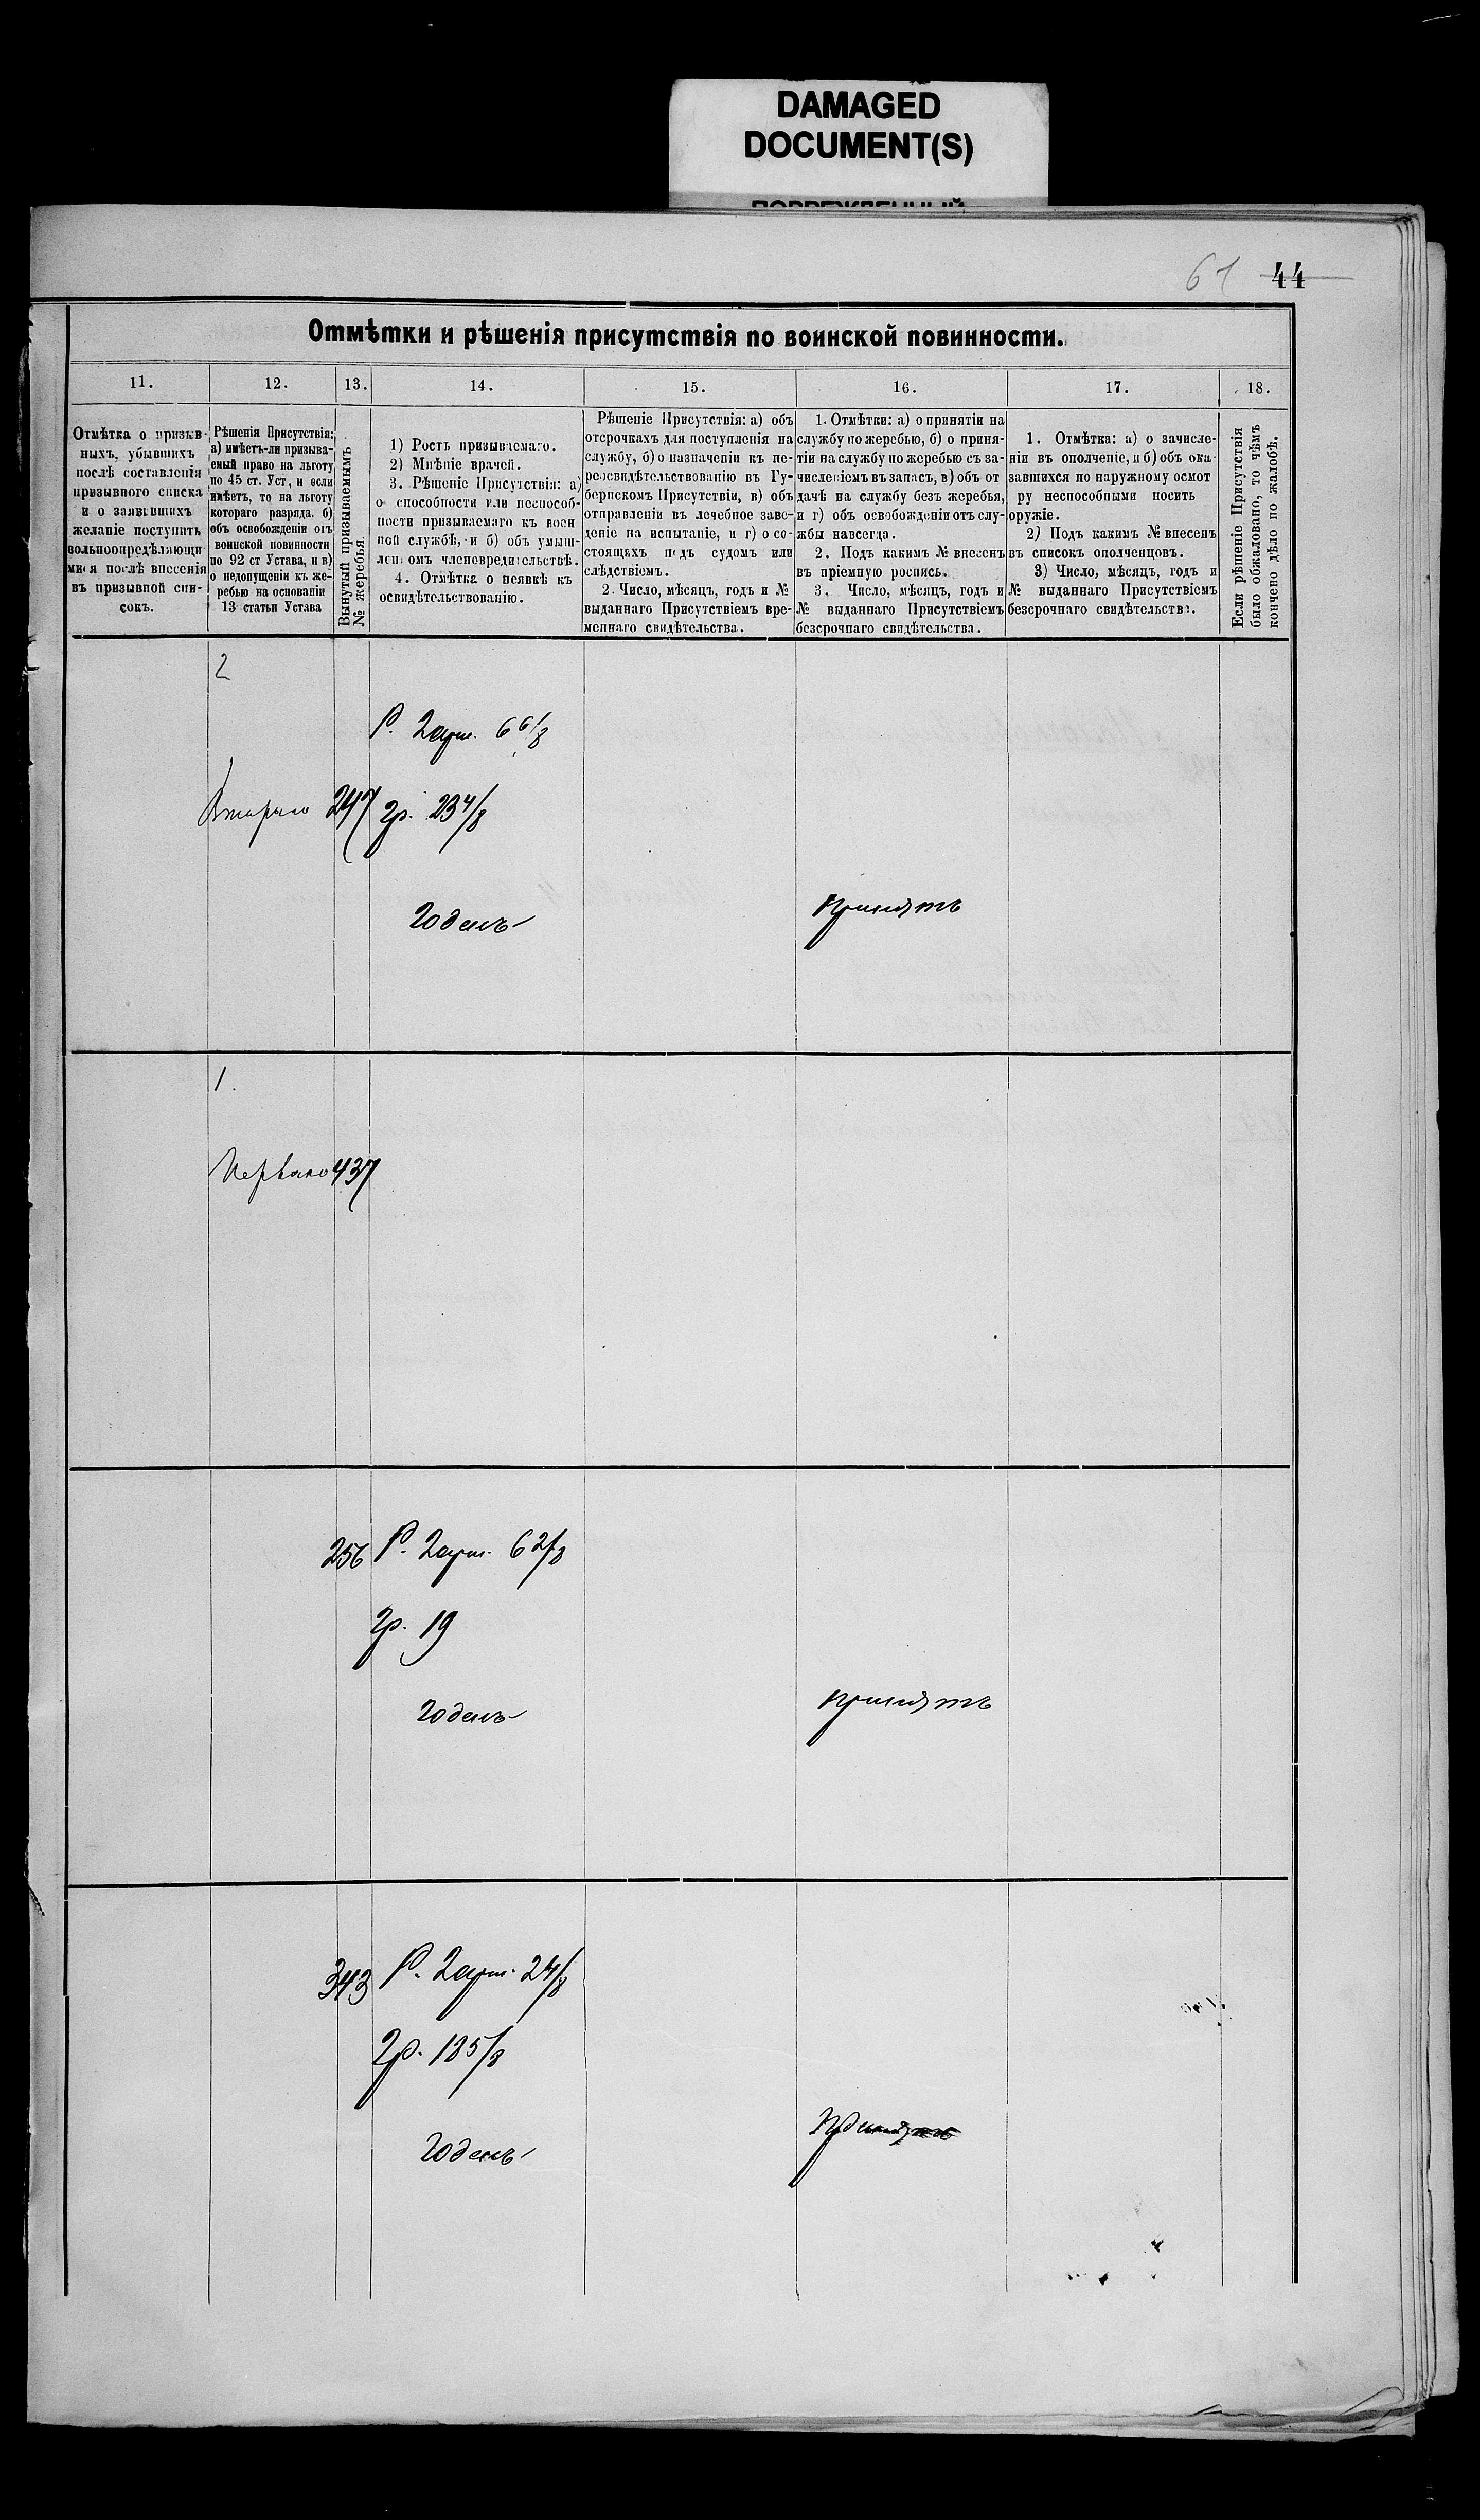 DAMAGED
DOCUMENT(S)
ПОВРЕЖДЕННЫЙ
61 44
Отмѣтки и рѣшенія присутствія по воинской повинности.
11.
12.
13.
14.
15.
16.
17.
18.
Отмѣтка о призыв-
ныхъ, убывшихъ
послѣ составленія
призывного списка
и о заявившихъ
желаніе поступить
вольноопредѣляющи-
мися послѣ внесенія
въ призывной спи-
сокъ.
Рѣшенія Присутствія:
а) имѣетъ-ли призыва-
емый право на льготу
по 45 ст. Уст, и если
имѣетъ, то на льготу
котораго разряда, б)
объ освобожденіи отъ
воинской повинности
по 92 ст Устава, и в)
о недопущеніи къ же-
ребью на основаніи
13 статьи Устава
Вынутый призываемымъ
№ жеребья.
1) Ростъ призываемаго.
2) Мнѣніе врачей.
3. Рѣшеніе Присутствія: а)
о способности или неспособ-
ности призываемаго къ воен
ной службѣ, и б) объ умыш-
ленномъ членовредительствѣ.
4. Отмѣтка о неявкѣ къ
освидѣтельствованію.
Рѣшеніе Присутствія: а) объ
отсрочкахъ для поступленія на
службу, б) о назначеніи къ пе-
реосвидѣтельствованію въ Гу-
бернскомъ Присутствіи, в) объ
отправленіи въ лечебное заве-
деніе на испытаніе, и г) о со-
стоящихъ подъ судомъ или
слѣдствіемъ.
2. Число, мѣсяцъ, годъ и №
выданнаго Присутствіемъ вре-
меннаго свидѣтельства.
1. Отмѣтки: а) о принятіи на
службу по жеребью, б) о приня-
тіи на службу по жеребью съ за-
численіемъ въ запасъ, в) объ от
дачѣ на службу безъ жеребья,
и г) объ освобожденіи отъ слу-
жбы навсегда.
2. Подъ какимъ № внесенъ
въ пріемную роспись.
3. Число, мѣсяцъ, годъ и
№ выданнаго Присутствіемъ
безсрочнаго свидѣтельства.
1. Отмѣтка: а) о зачисле-
ніи въ ополченіе, и б) объ ока-
завшихся по наружному осмот
ру неспособными носить
оружіе.
2) Подъ какимъ № внесенъ
въ списокъ ополченцовъ.
3) Число, мѣсяцъ, годъ и
№ выданнаго Присутствіемъ
безсрочнаго свидѣтельства.
Если рѣшеніе Присутствія
было обжаловано, то чѣмъ
кончено дѣло по жалобѣ.
2
Р. 2 арш. 6 6/8
Втораго 247 гр. 23 4/8
Годенъ принятъ
1.
Перваго 437
256 Р. 2 арш. 6 2/8
гр. 19
годенъ принятъ
343 Р. 2 арш. 2 4/8
гр. 18 5/8
годенъ принятъ